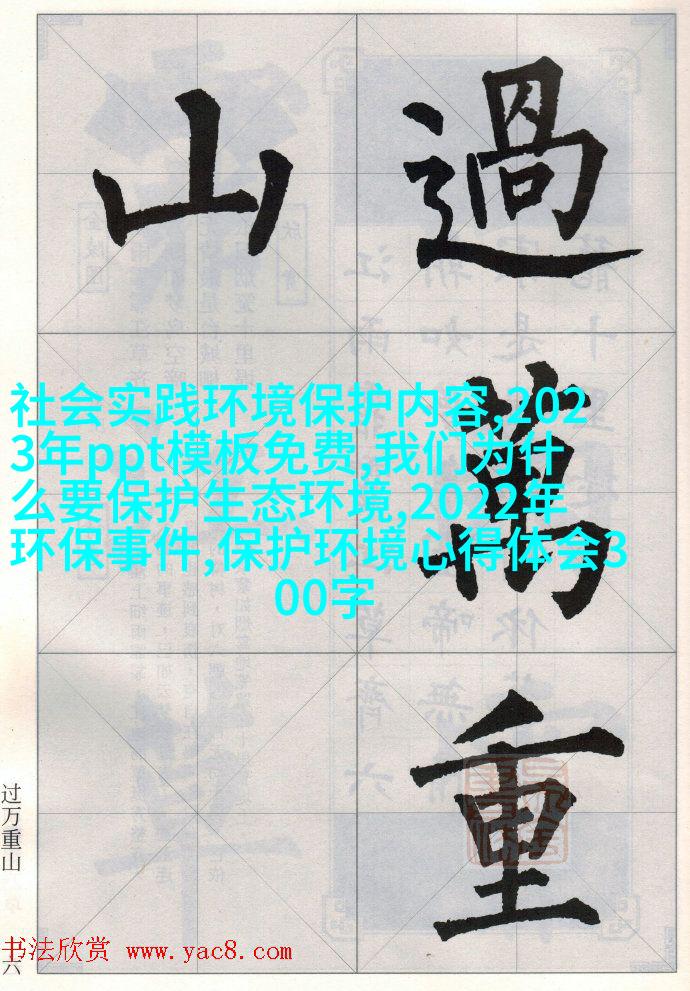 過萬重
山
社会实践环境保护内容,202
3年ppt模板免费,我们为什
么要保护生态环境,2022年
环保事件,保护环境心得体会3
00字
过万重山
书法欣赏 www.yac8.com
六